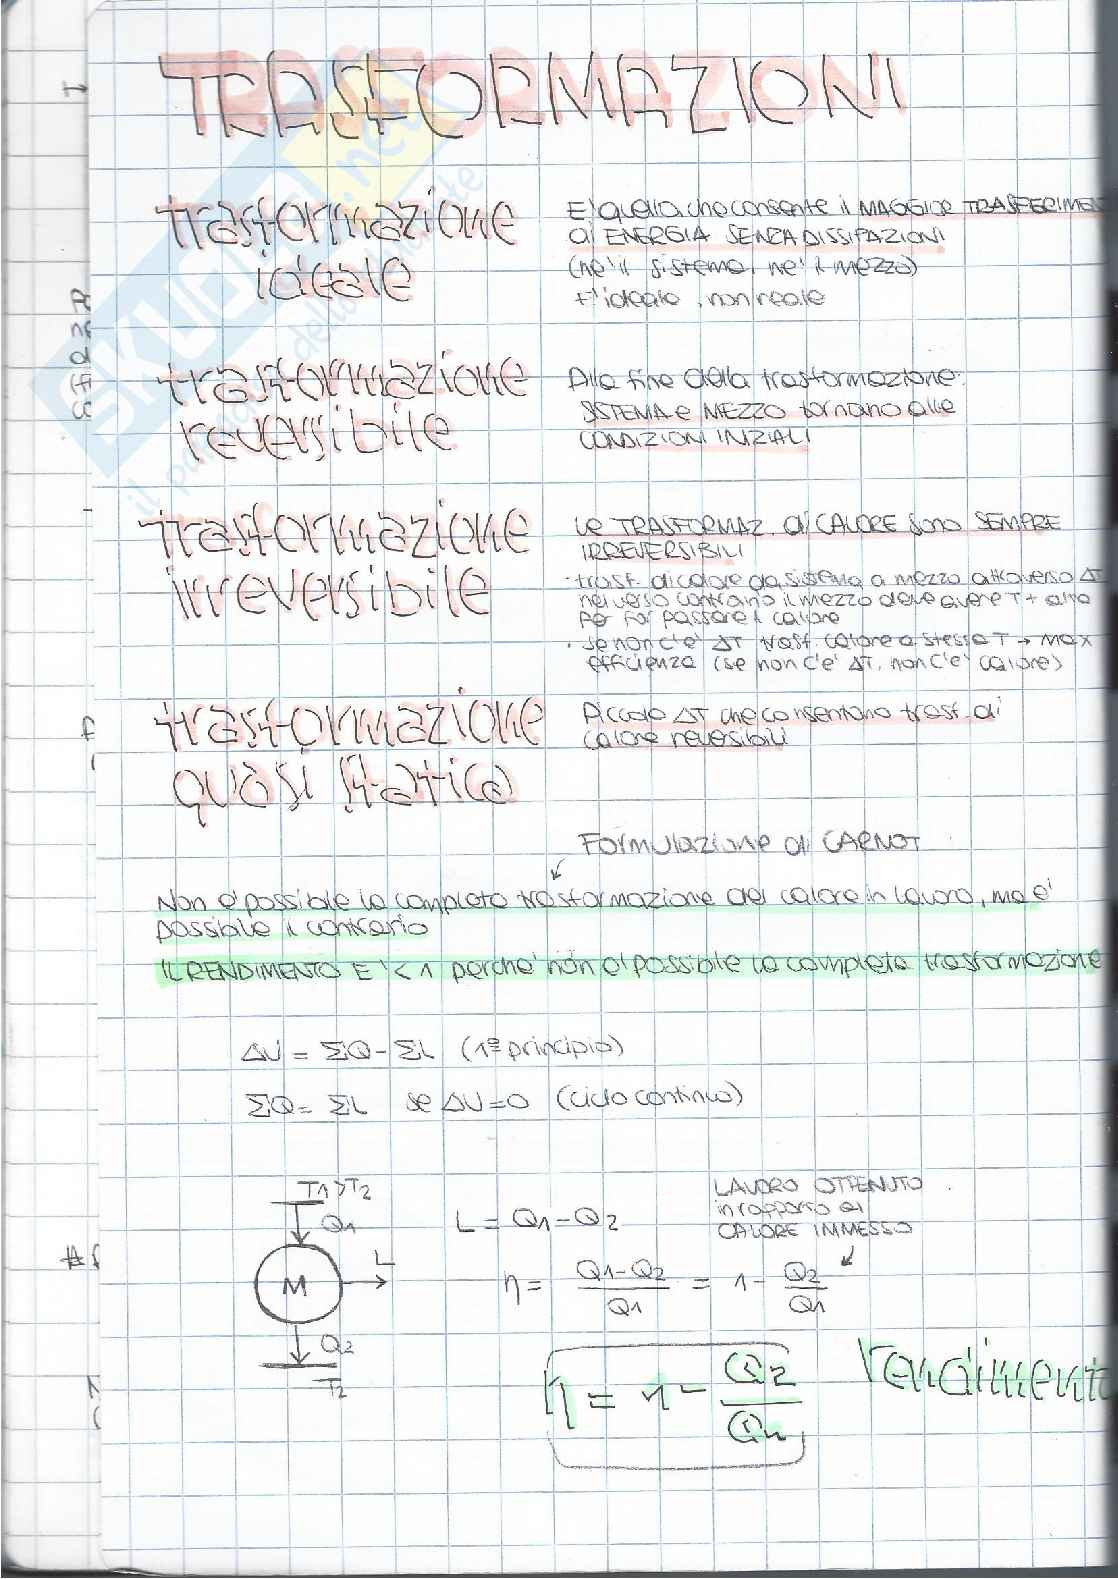 TRASFORMAZIONI
trasformazione
ideale
E' quella che consente il MAGGIOR TRASFERIMEN
di ENERGIA SENZA DISSIPAZIONI
(ne' il sistema, ne' il mezzo)
E' ideale, non reale
trasformazione
reversibile
Alla fine della trasformazione
SISTEMA e MEZZO tornano alle
CONDIZIONI INIZIALI
trasformazione
irreversibile
Le TRASFORMAZ. di CALORE sono SEMPRE
IRREVERSIBILI
· trasf. di calore da sistema a mezzo attraverso ΔT
nel verso contrario il mezzo deve avere T + alta
per far passare il calore
· se non c'e' ΔT trasf. calore a stessa T → max
efficienza (se non c'e' ΔT, non c'e' calore)
trasformazione
quasi statica
Piccole ΔT che consentono trasf. di
calore revesibili
Formulazione di CARNOT
Non e' possibile la completa trasformazione del calore in lavoro, ma e'
possibile il contrario
IL RENDIMENTO E' < 1 perche' non e' possibile la completa trasformazione
ΔU = ΣQ - ΣL (1º principio)
ΣQ = ΣL se ΔU = 0 (ciclo continuo)
T1 > T2
Q1
M
L
Q2
T2
L = Q1 - Q2
LAVORO OTTENUTO
in rapporto al
CALORE IMMESSO
η = Q1 - Q2 / Q1 = 1 - Q2 / Q1
η = 1 - Q2 / Q1
rendimento
SKUOLA.net